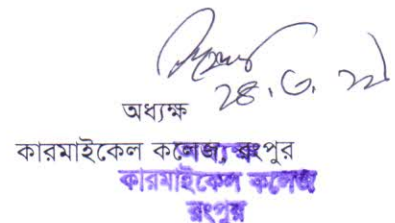 ২৪.৩.২২
অধ্যক্ষ
কারমাইকেল কলেজ, রংপুর
অধ্যক্ষ
কারমাইকেল কলেজ
রংপুর